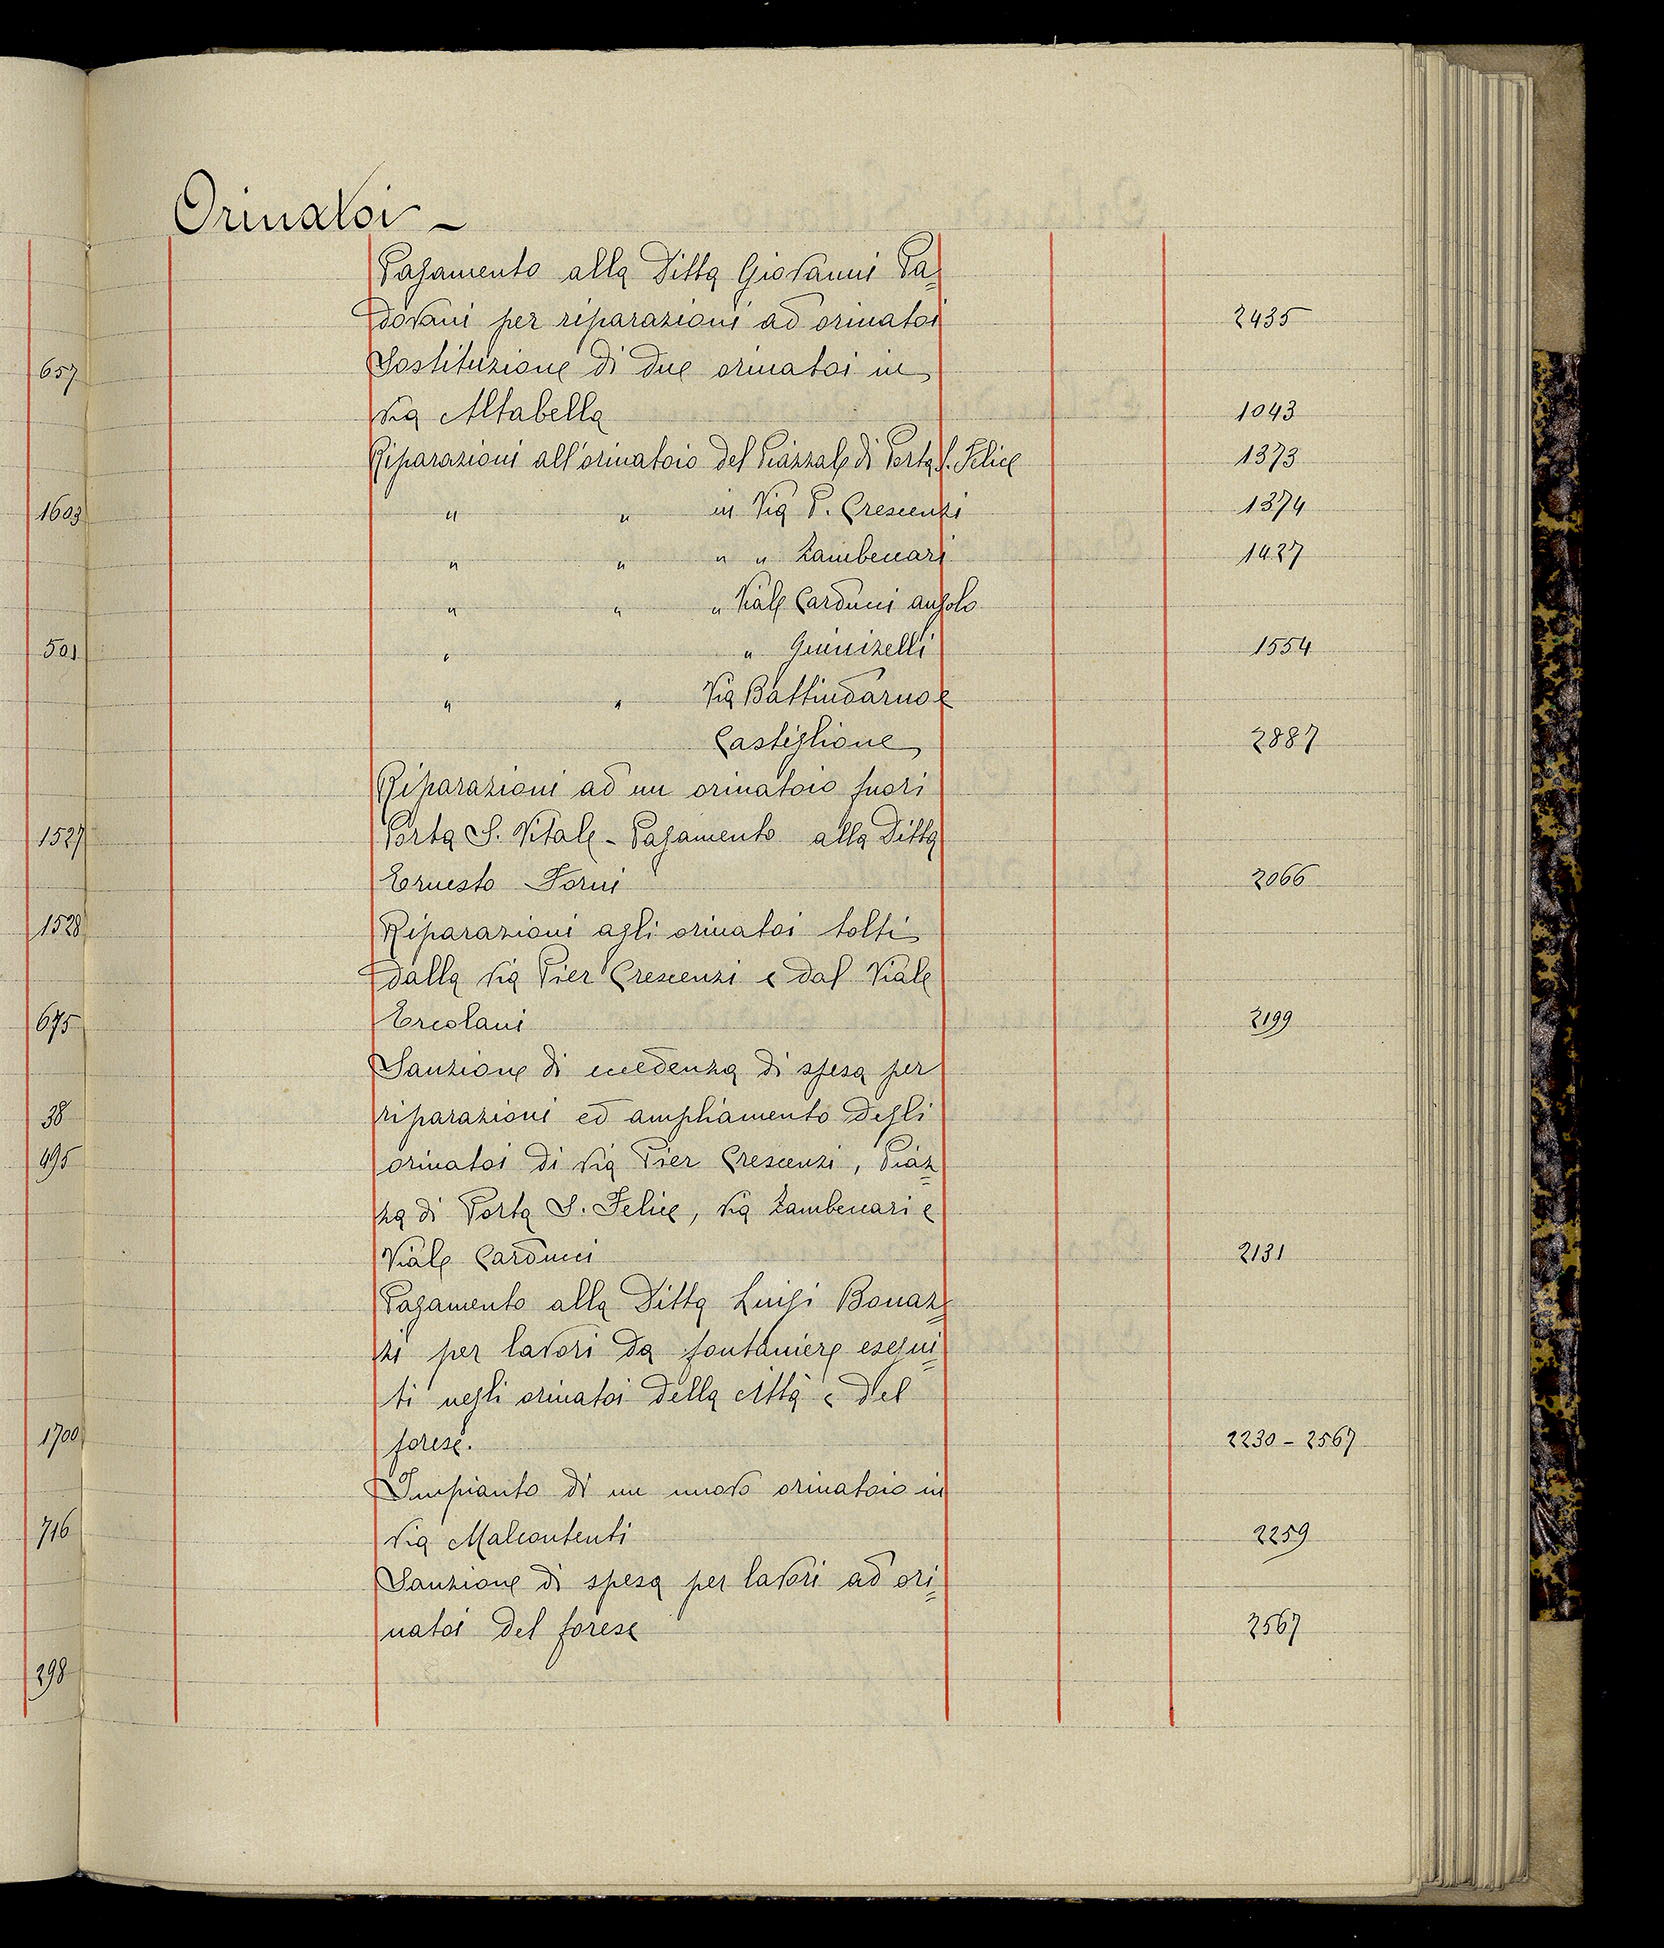 Orinatoi -
Pagamento alla Ditta Giovanni Pa=
dovani per riparazioni ad orinatoi 2435
Sostituzione di due orinatoi in
657
via Altabella 1043
Riparazioni all'orinatoio del Piazzale di Porta S. Felice 1373
1603 " " in Via P. Crescenzi 1374
" " " " Zambeccari 1427
" " " Viale Carducci angolo
501 " " Guinizelli 1554
" " Via Battindarno e
Castiglione 2887
Riparazioni ad un orinatoio fuori
1527 Porta S. Vitale - Pagamento alla Ditta
Ernesto Forni 2066
1528 Riparazioni agli orinatoi tolti
dalla via Pier Crescenzi e dal Viale
675 Ercolani 2199
Sanzione di eccedenza di spesa per
38 riparazioni ed ampliamento degli
495 orinatoi di via Pier Crescenzi, Piaz=
za di Porta S. Felice, via Zambeccari e
Viale Carducci 2131
Pagamento alla Ditta Luigi Bonaz=
zi per lavori da fontaniere esegui=
ti negli orinatoi della città e del
1700 forese. 2230 - 2567
Impianto di un nuovo orinatoio in
716 via Malcontenti 2259
Sanzione di spesa per lavori ad ori=
natoi del forese 2567
298